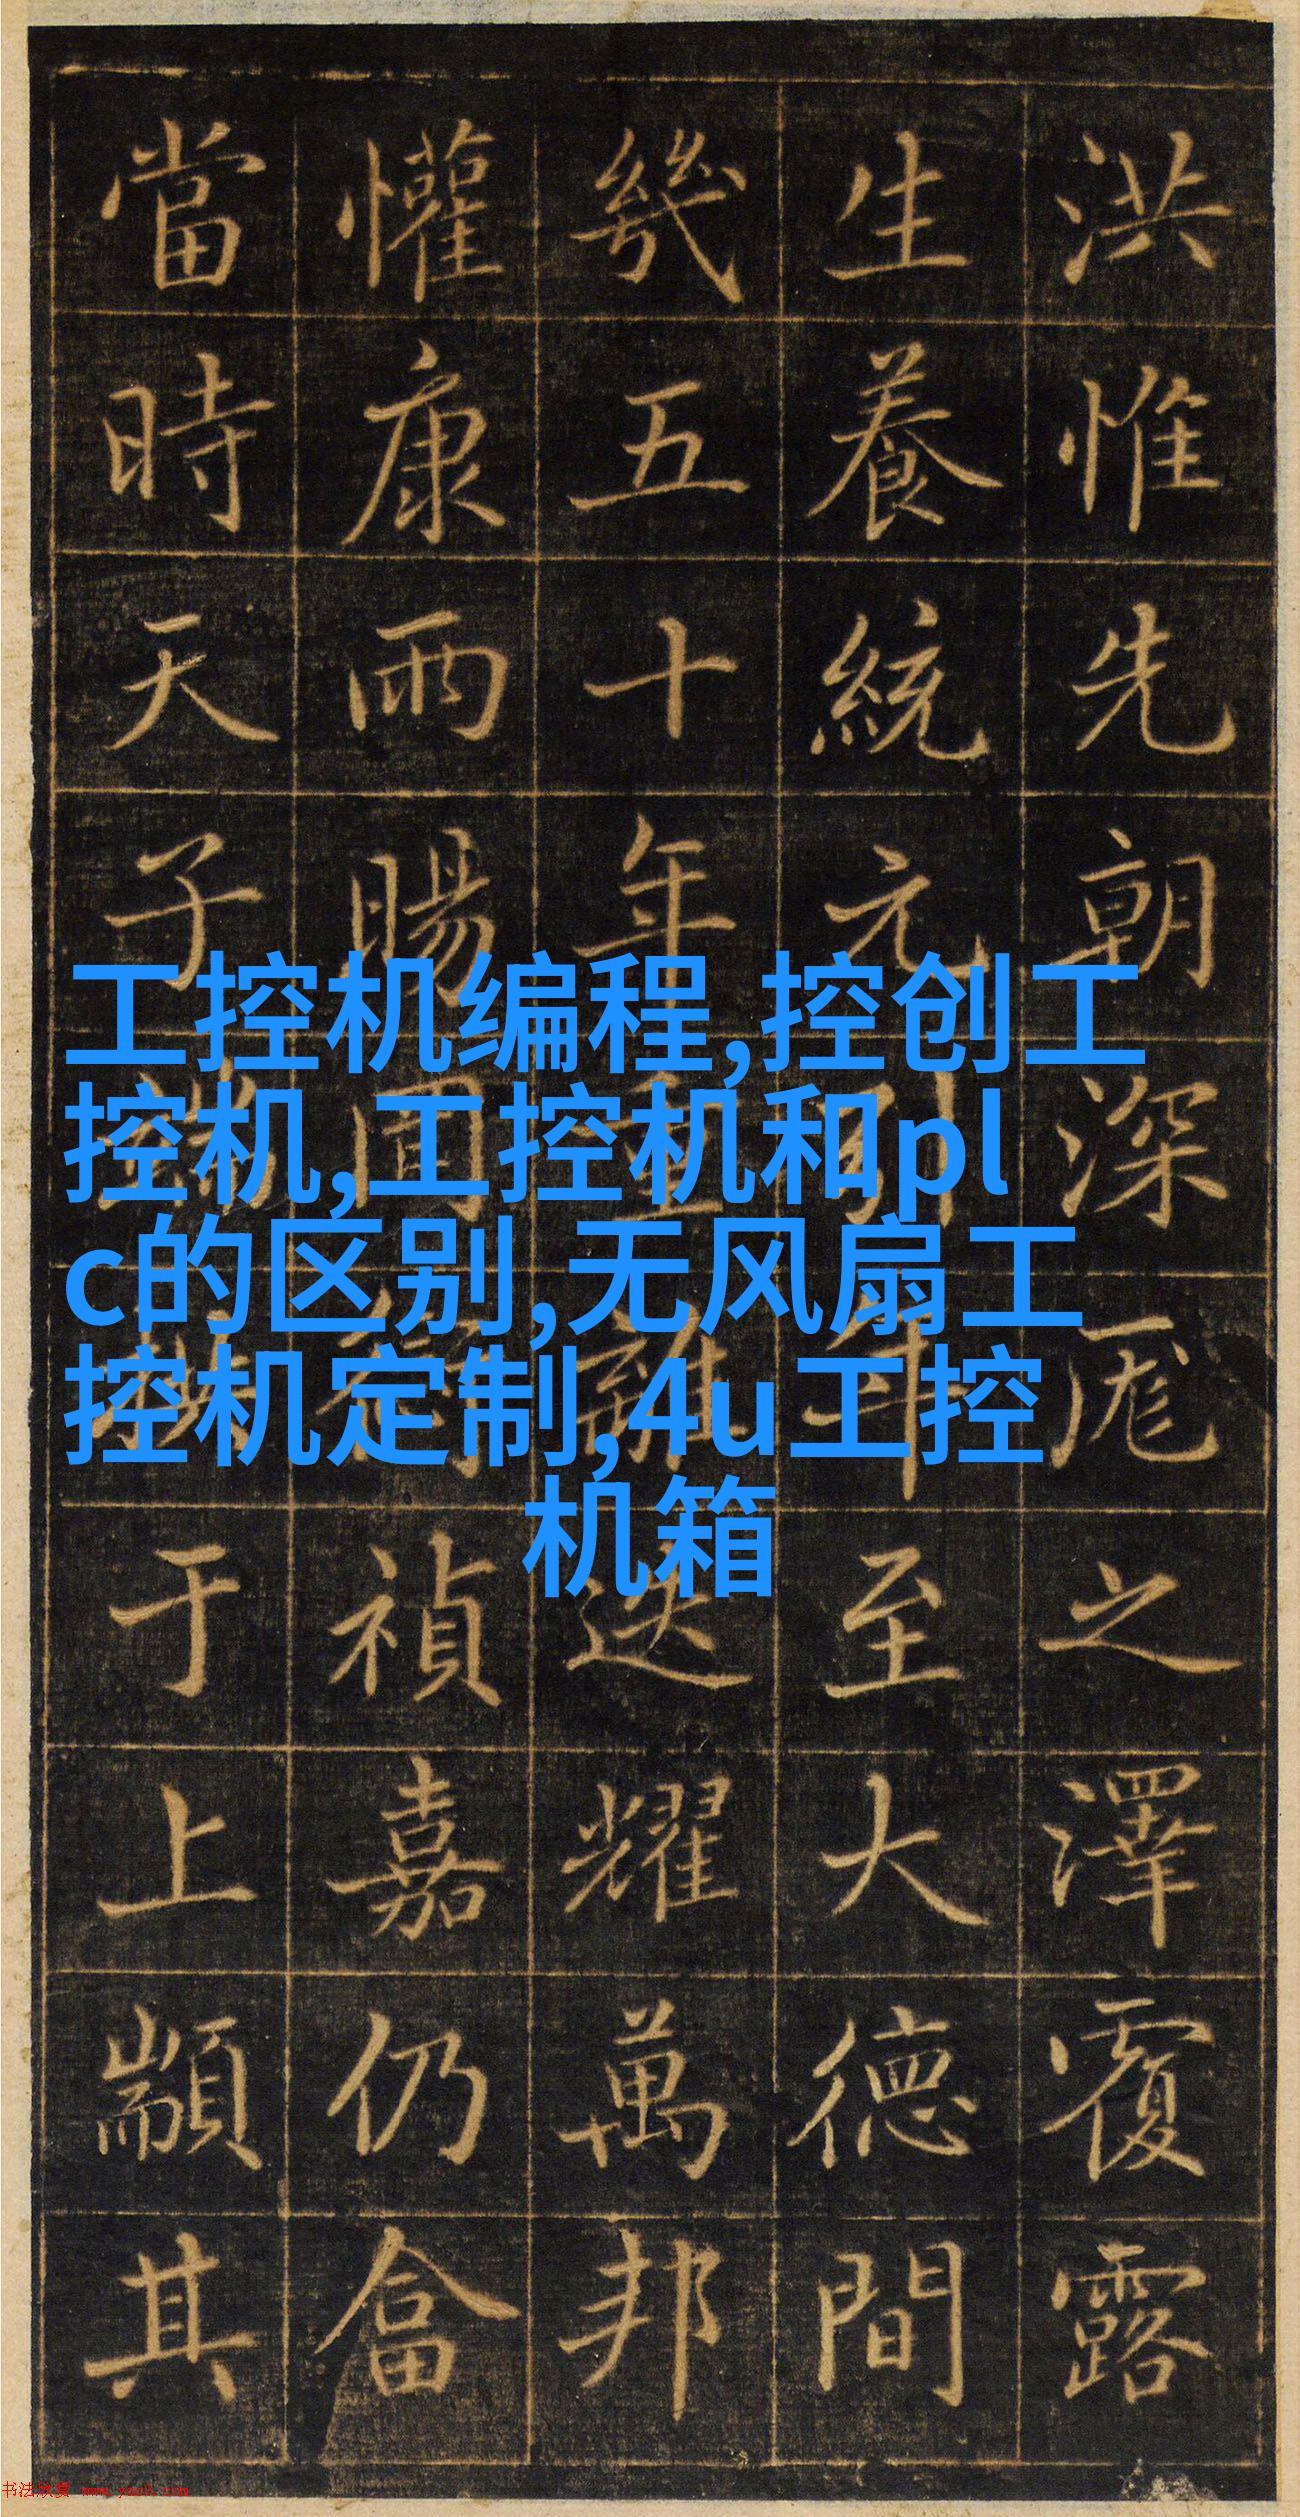 工控机编程,控创工
控机,工控机和pl
c的区别,无风扇工
控机定制,4u工控
机箱
洪惟先朝深厖之澤覆露
生養統元引年至大德間
幾五十年重離迭耀萬邦
懽康雨暘禎嘉仍畣
當時天子于上顓其
书法欣赏 www.yac8.com